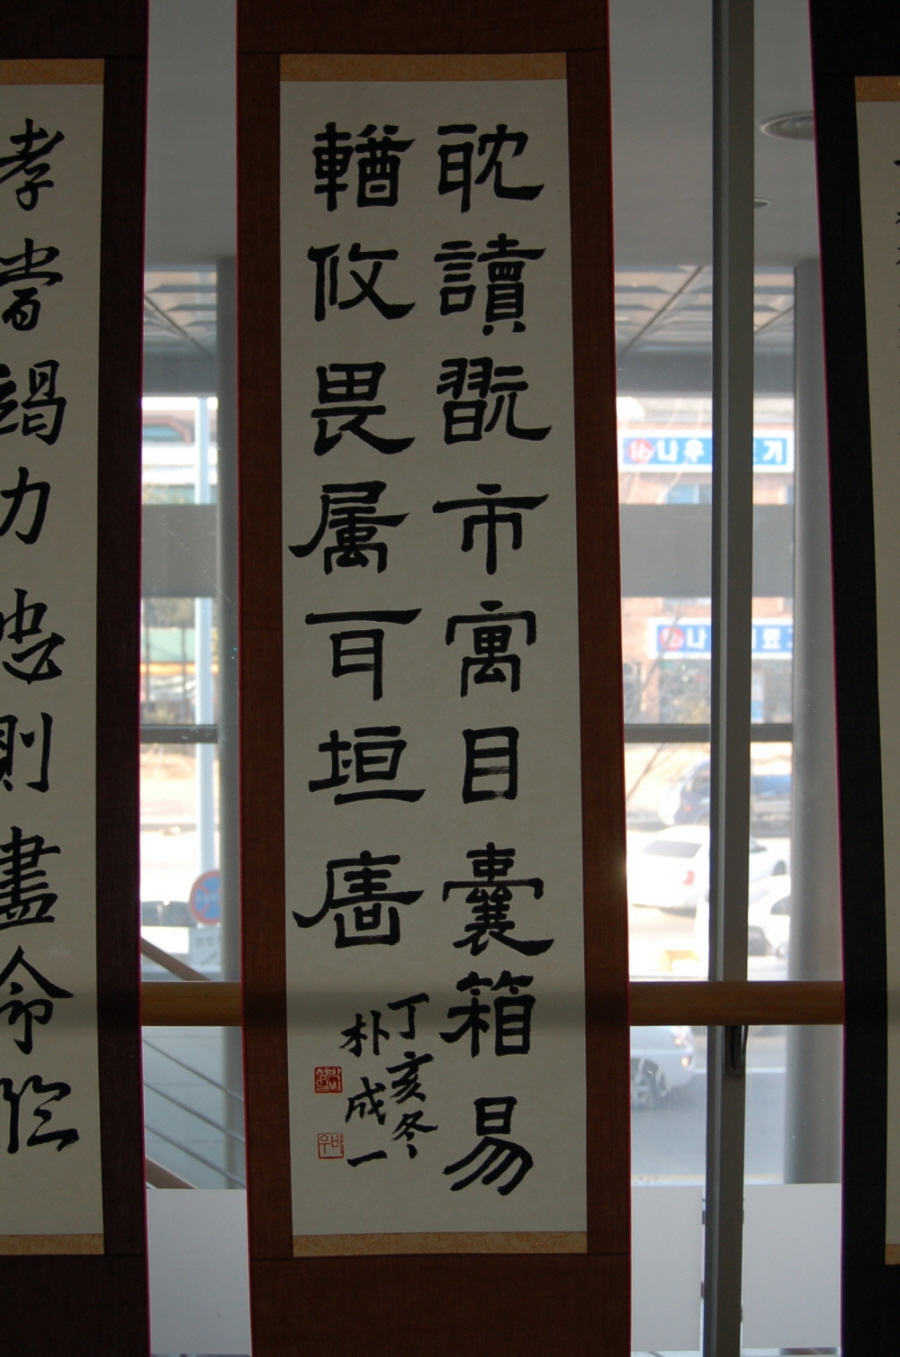 耽讀翫市寓目囊箱易
輶攸畏屬耳垣墻
丁亥冬
朴成一
孝當竭力忠則盡命臨
나우
나